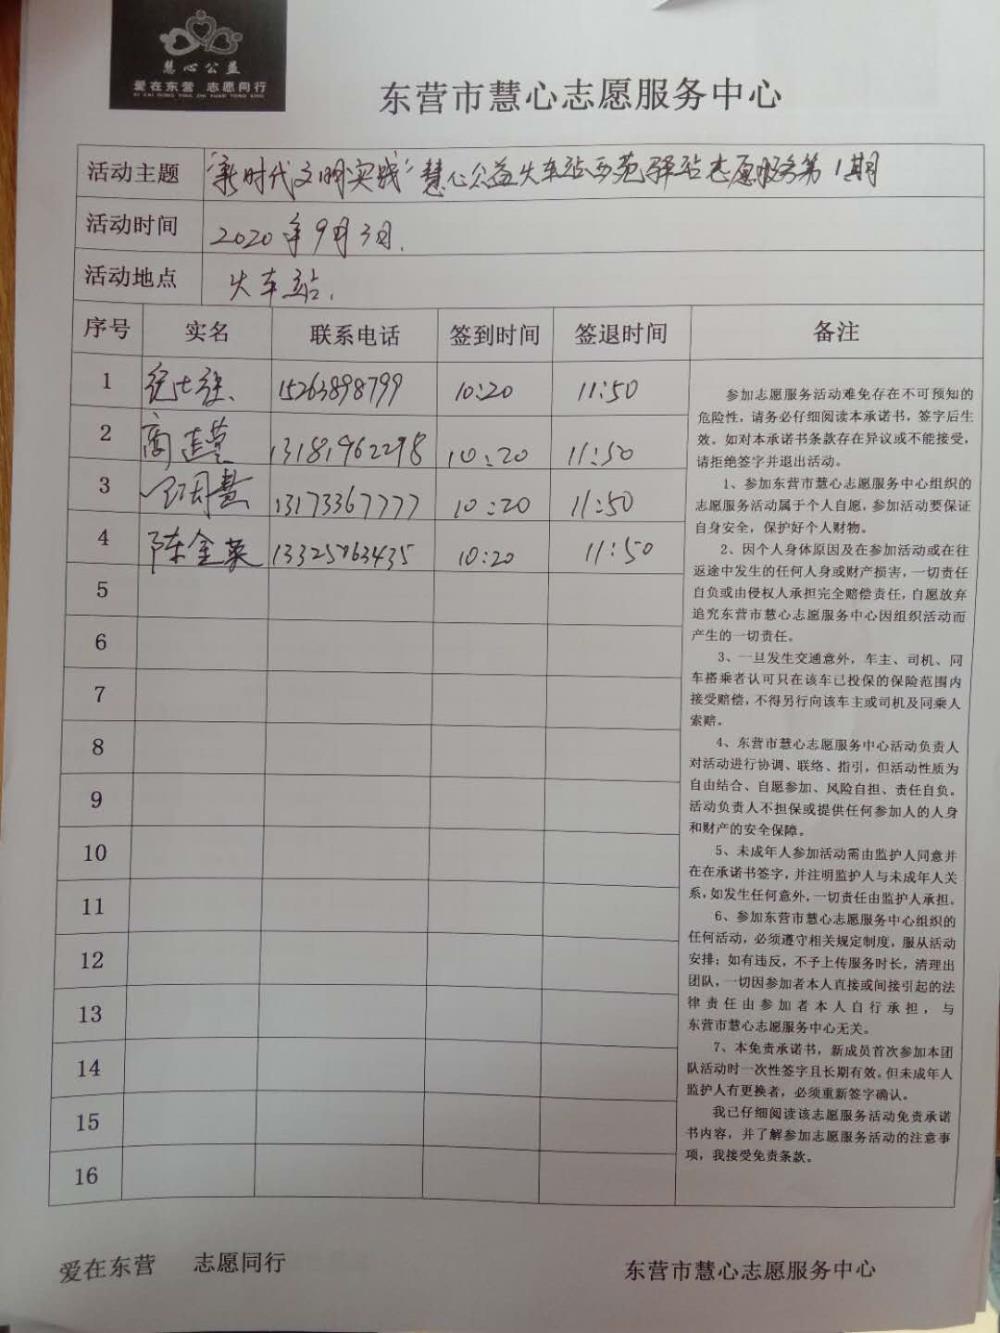 慧心公益
爱在东营 志愿同行
东营市慧心志愿服务中心
活动主题 "新时代文明实践"慧心公益火车站西苑驿站志愿服务第1期
活动时间 2020年9月3日.
活动地点 火车站.
序号 实名 联系电话 签到时间 签退时间 备注
1 15263898799 10:20 11:50
2 高莲莹 13181962298 10:20 11:50
3 13173367777 10:20 11:50
4 陈金英 13325063435 10:20 11:50
5
6
7
8
9
10
11
12
13
14
15
16
参加志愿服务活动难免存在不可预知的
危险性，请务必仔细阅读本承诺书，签字后生
效。如对本承诺书条款存在异议或不能接受，
请拒绝签字并退出活动。
1、参加东营市慧心志愿服务中心组织的
志愿服务活动属于个人自愿，参加活动要保证
自身安全，保护好个人财物。
2、因个人身体原因及在参加活动或在往
返途中发生的任何人身或财产损害，一切责任
自负或由侵权人承担完全赔偿责任，自愿放弃
追究东营市慧心志愿服务中心因组织活动而
产生的一切责任。
3、一旦发生交通意外，车主、司机、同
车搭乘者认可只在该车已投保的保险范围内
接受赔偿，不得另行向该车主或司机及同乘人
索赔。
4、东营市慧心志愿服务中心活动负责人
对活动进行协调、联络、指引，但活动性质为
自由结合、自愿参加、风险自担、责任自负。
活动负责人不担保或提供任何参加人的人身
和财产的安全保障。
5、未成年人参加活动需由监护人同意并
在在承诺书签字，并注明监护人与未成年人关
系，如发生任何意外，一切责任由监护人承担。
6、参加东营市慧心志愿服务中心组织的
任何活动，必须遵守相关规定制度，服从活动
安排；如有违反，不予上传服务时长，清理出
团队，一切因参加者本人直接或间接引起的法
律责任由参加者本人自行承担，与
东营市慧心志愿服务中心无关。
7、本免责承诺书，新成员首次参加本团
队活动时一次性签字且长期有效。但未成年人
监护人有更换者，必须重新签字确认。
我已仔细阅读该志愿服务活动免责承诺
书内容，并了解参加志愿服务活动的注意事
项，我接受免责条款。
爱在东营 志愿同行 东营市慧心志愿服务中心